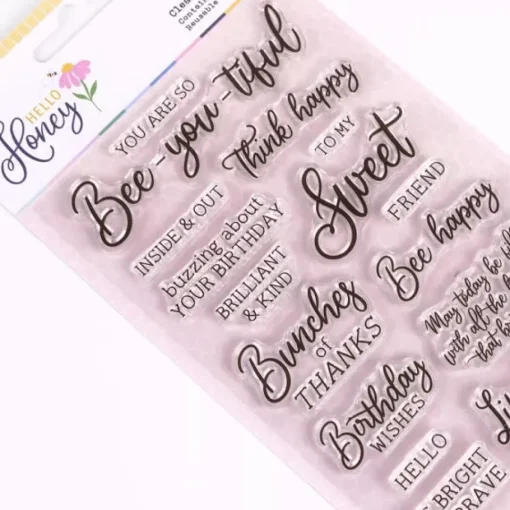 HELLO
Honey
YOU ARE SO
Bee-you-tiful
Think happy
INSIDE & OUT
TO MY
Sweet
FRIEND
buzzing about
YOUR BIRTHDAY
BRILLIANT
& KIND
Bee happy
Bunches
of
THANKS
May today be
with all the
that
Birthday
WISHES
HELLO
BRIGHT